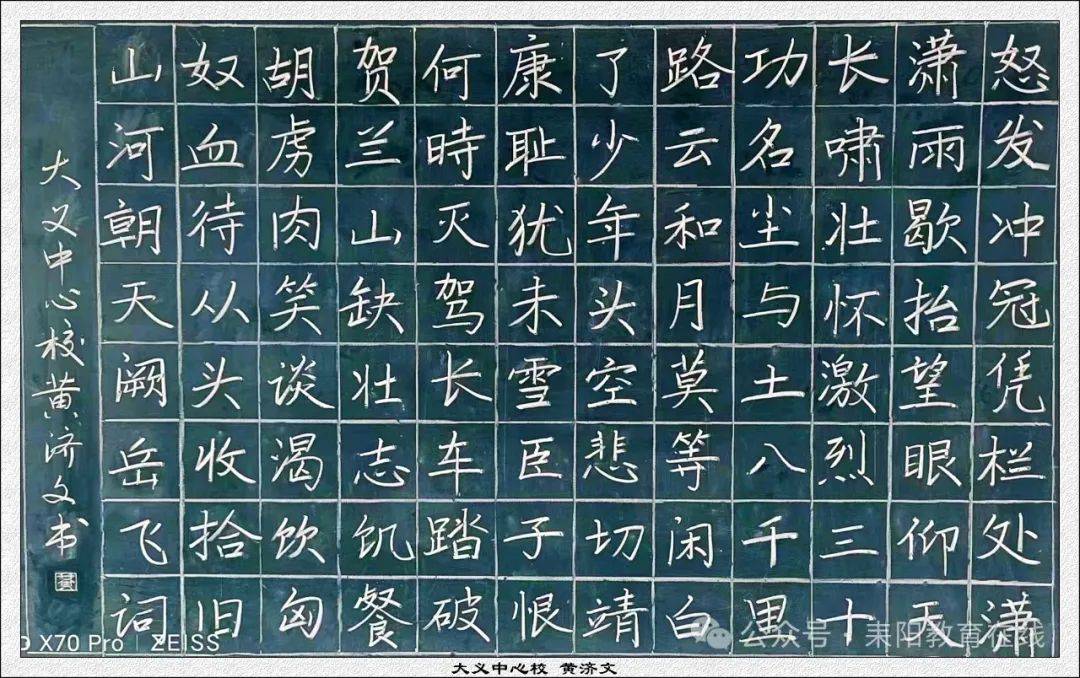 怒发冲冠凭栏处满
潇雨歇抬望眼仰天
长啸壮怀激烈三十
功名尘与土八千里
路云和月莫等闲白
了少年头空悲切靖
康耻犹未雪臣子恨
何時灭驾长车踏破
贺兰山缺壮志饥餐
胡虏肉笑谈渴饮匈
奴血待从头收拾旧
山河朝天阙岳飞词
大义中心校黄济文书
X70 Pro | ZEISS
公众号 · 耒阳教育在线
大义中心校 黄济文